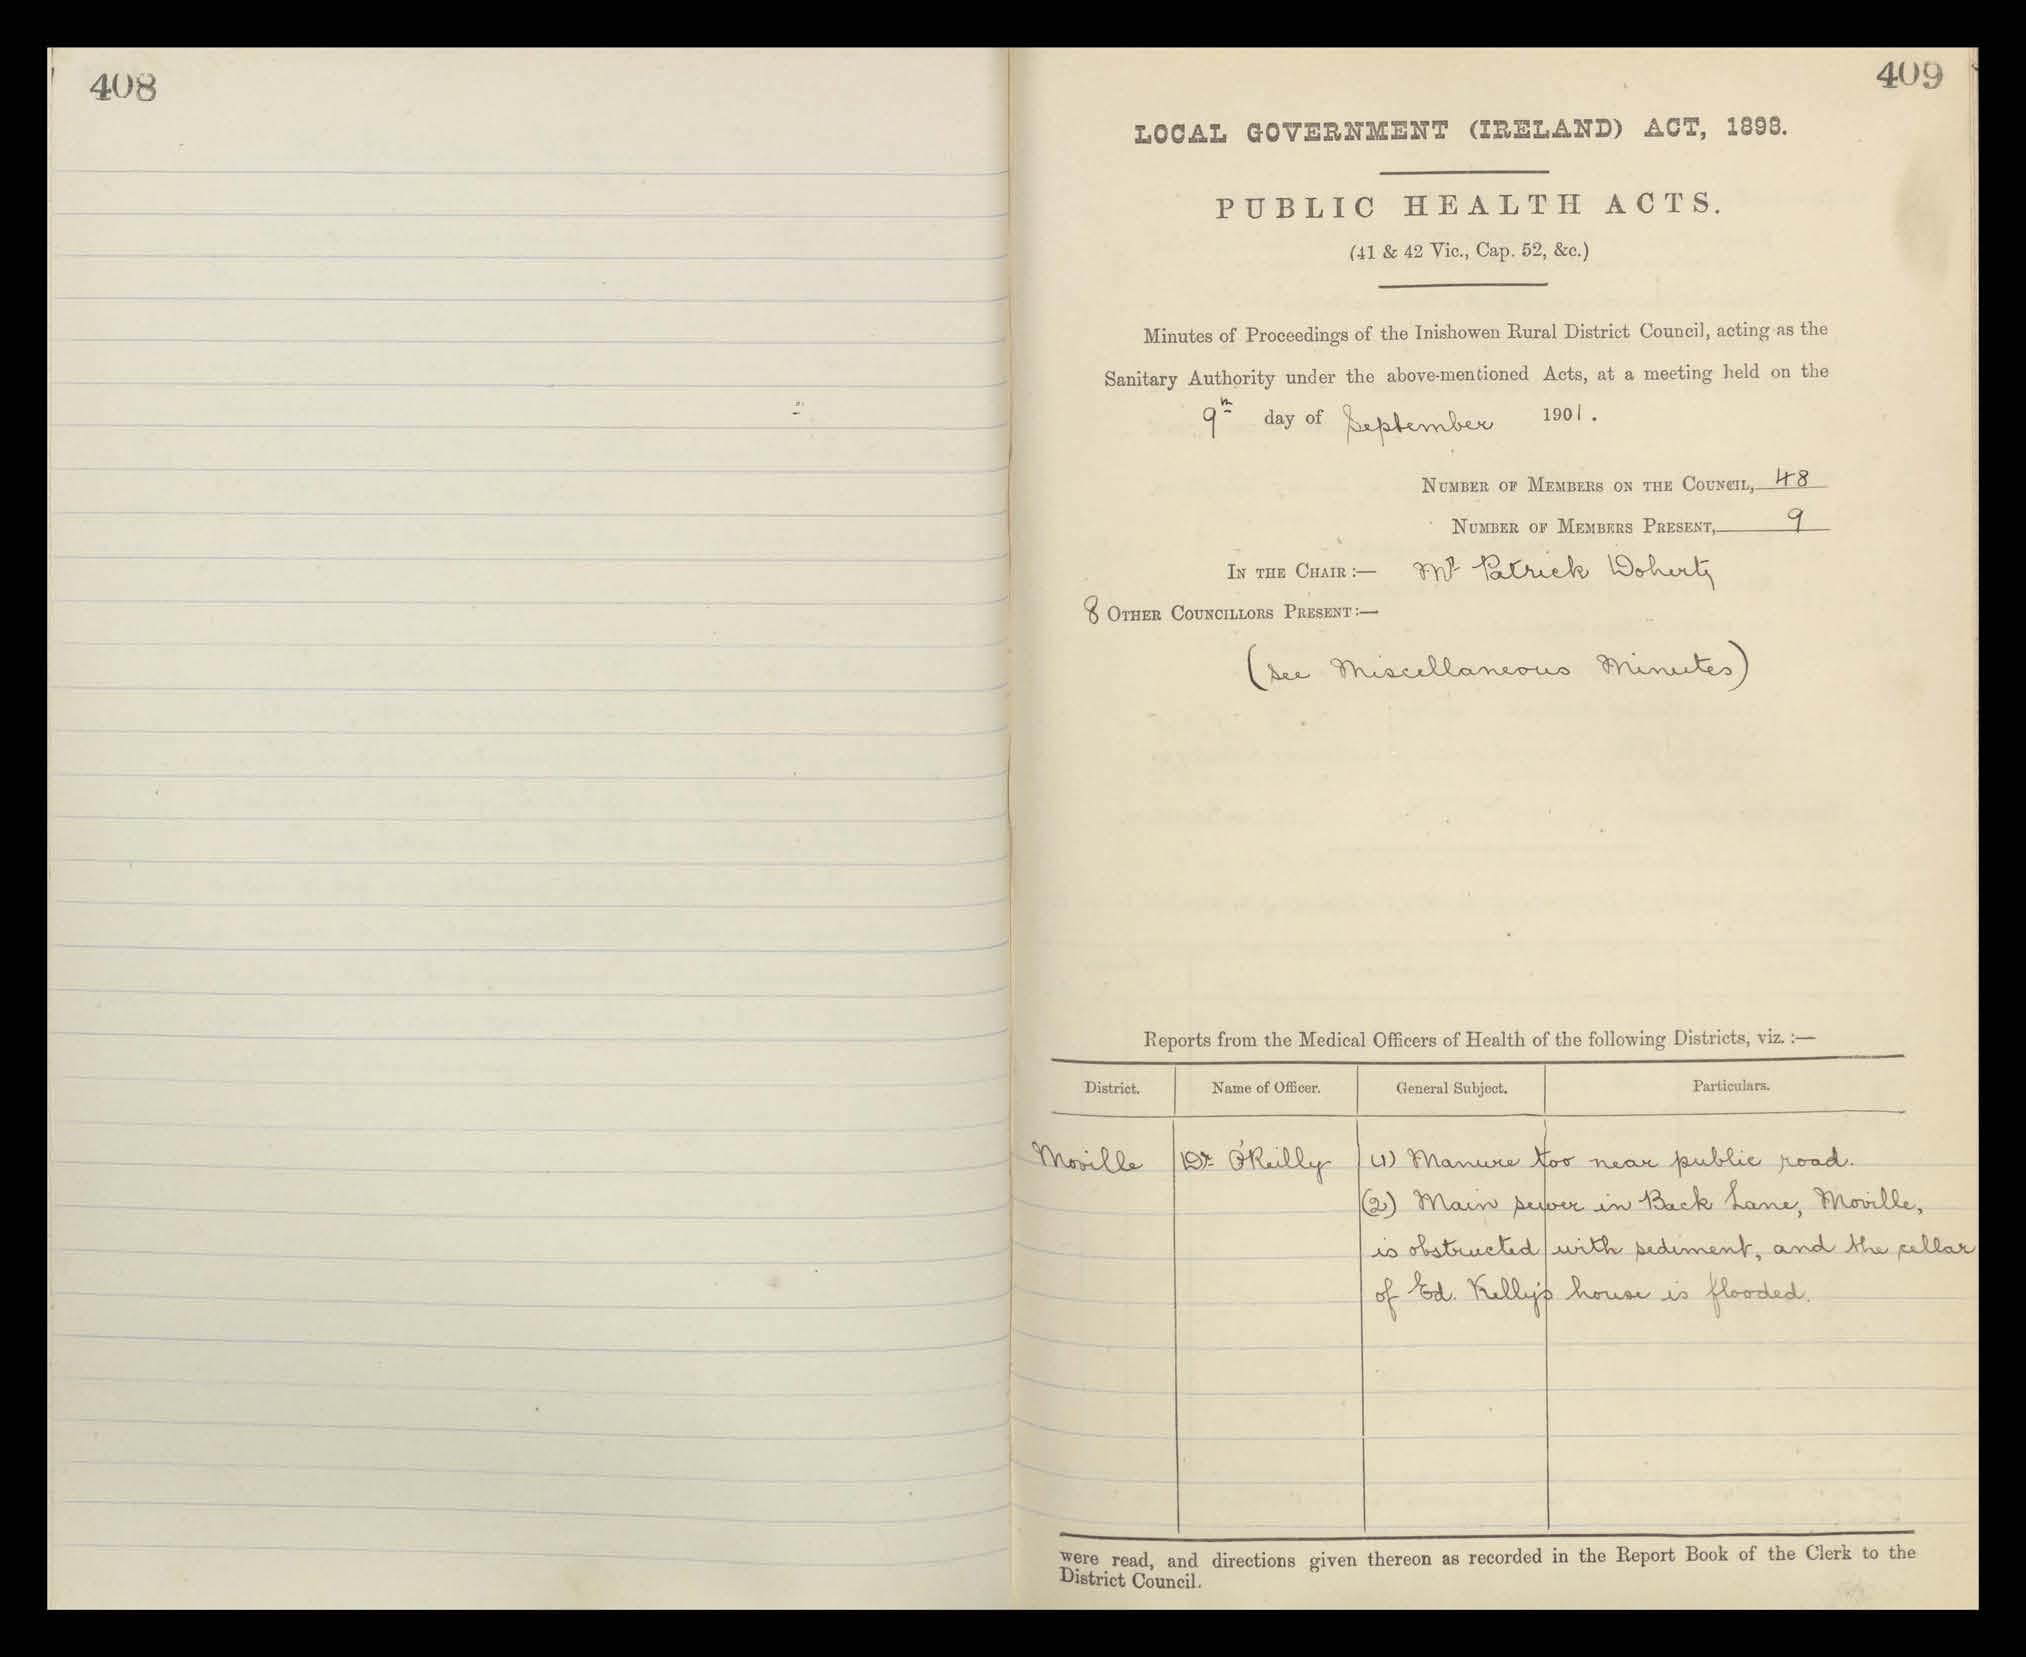 408
409
LOCAL GOVERNMENT (IRELAND) ACT, 1898.
PUBLIC HEALTH ACTS.
(41 & 42 Vic., Cap. 52, &c.)
Minutes of Proceedings of the Inishowen Rural District Council, acting as the
Sanitary Authority under the above-mentioned Acts, at a meeting held on the
9th day of September 1901.
NUMBER OF MEMBERS ON THE COUNCIL, 48
NUMBER OF MEMBERS PRESENT, 9
IN THE CHAIR:— Mr Patrick Doherty
8 OTHER COUNCILLORS PRESENT:—
(see Miscellaneous Minutes)
Reports from the Medical Officers of Health of the following Districts, viz.:—
District. Name of Officer. General Subject. Particulars.
Moville Dr. O'Reilly (1) Manure too near public road.
(2) Main sewer in Back Lane, Moville,
is obstructed with sediment, and the cellar
of Ed. Kelly's house is flooded.
were read, and directions given thereon as recorded in the Report Book of the Clerk to the
District Council.